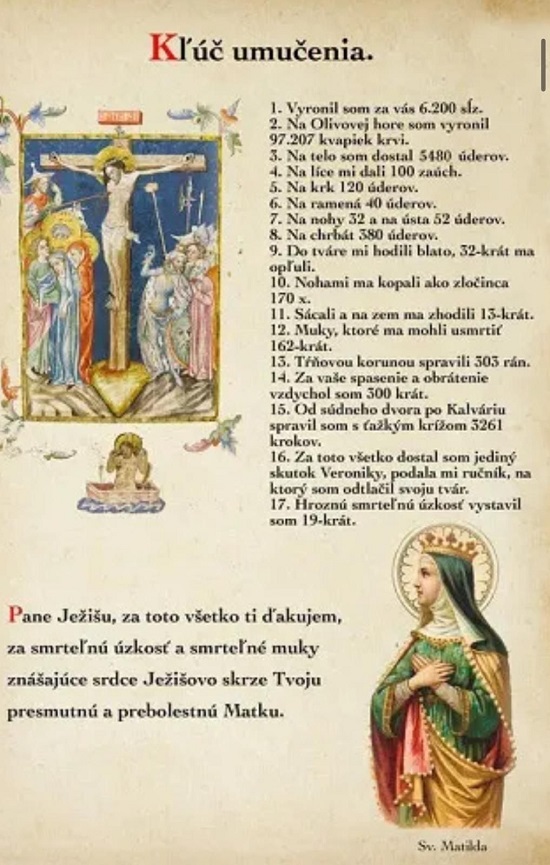 Kľúč umučenia.
1. Vyronil som za vás 6.200 sĺz.
2. Na Olivovej hore som vyronil
97.207 kvapiek krvi.
3. Na telo som dostal 5480 úderov.
4. Na líce mi dali 100 zaúch.
5. Na krk 120 úderov.
6. Na ramená 40 úderov.
7. Na nohy 32 a na ústa 52 úderov.
8. Na chrbát 380 úderov.
9. Do tváre mi hodili blato, 32-krát ma
opľuli.
10. Nohami ma kopali ako zločinca
170 x.
11. Sácali a na zem ma zhodili 13-krát.
12. Muky, ktoré ma mohli usmrtiť
162-krát.
13. Tŕňovou korunou spravili 303 rán.
14. Za vaše spasenie a obrátenie
vzdychol som 300 krát.
15. Od súdneho dvora po Kalváriu
spravil som s ťažkým krížom 3261
krokov.
16. Za toto všetko dostal som jediný
skutok Veroniky, podala mi ručník, na
ktorý som odtlačil svoju tvár.
17. Hroznú smrteľnú úzkosť vystavil
som 19-krát.
Pane Ježišu, za toto všetko ti ďakujem,
za smrteľnú úzkosť a smrteľné muky
znášajúce srdce Ježišovo skrze Tvoju
presmutnú a prebolestnú Matku.
Sv. Matilda